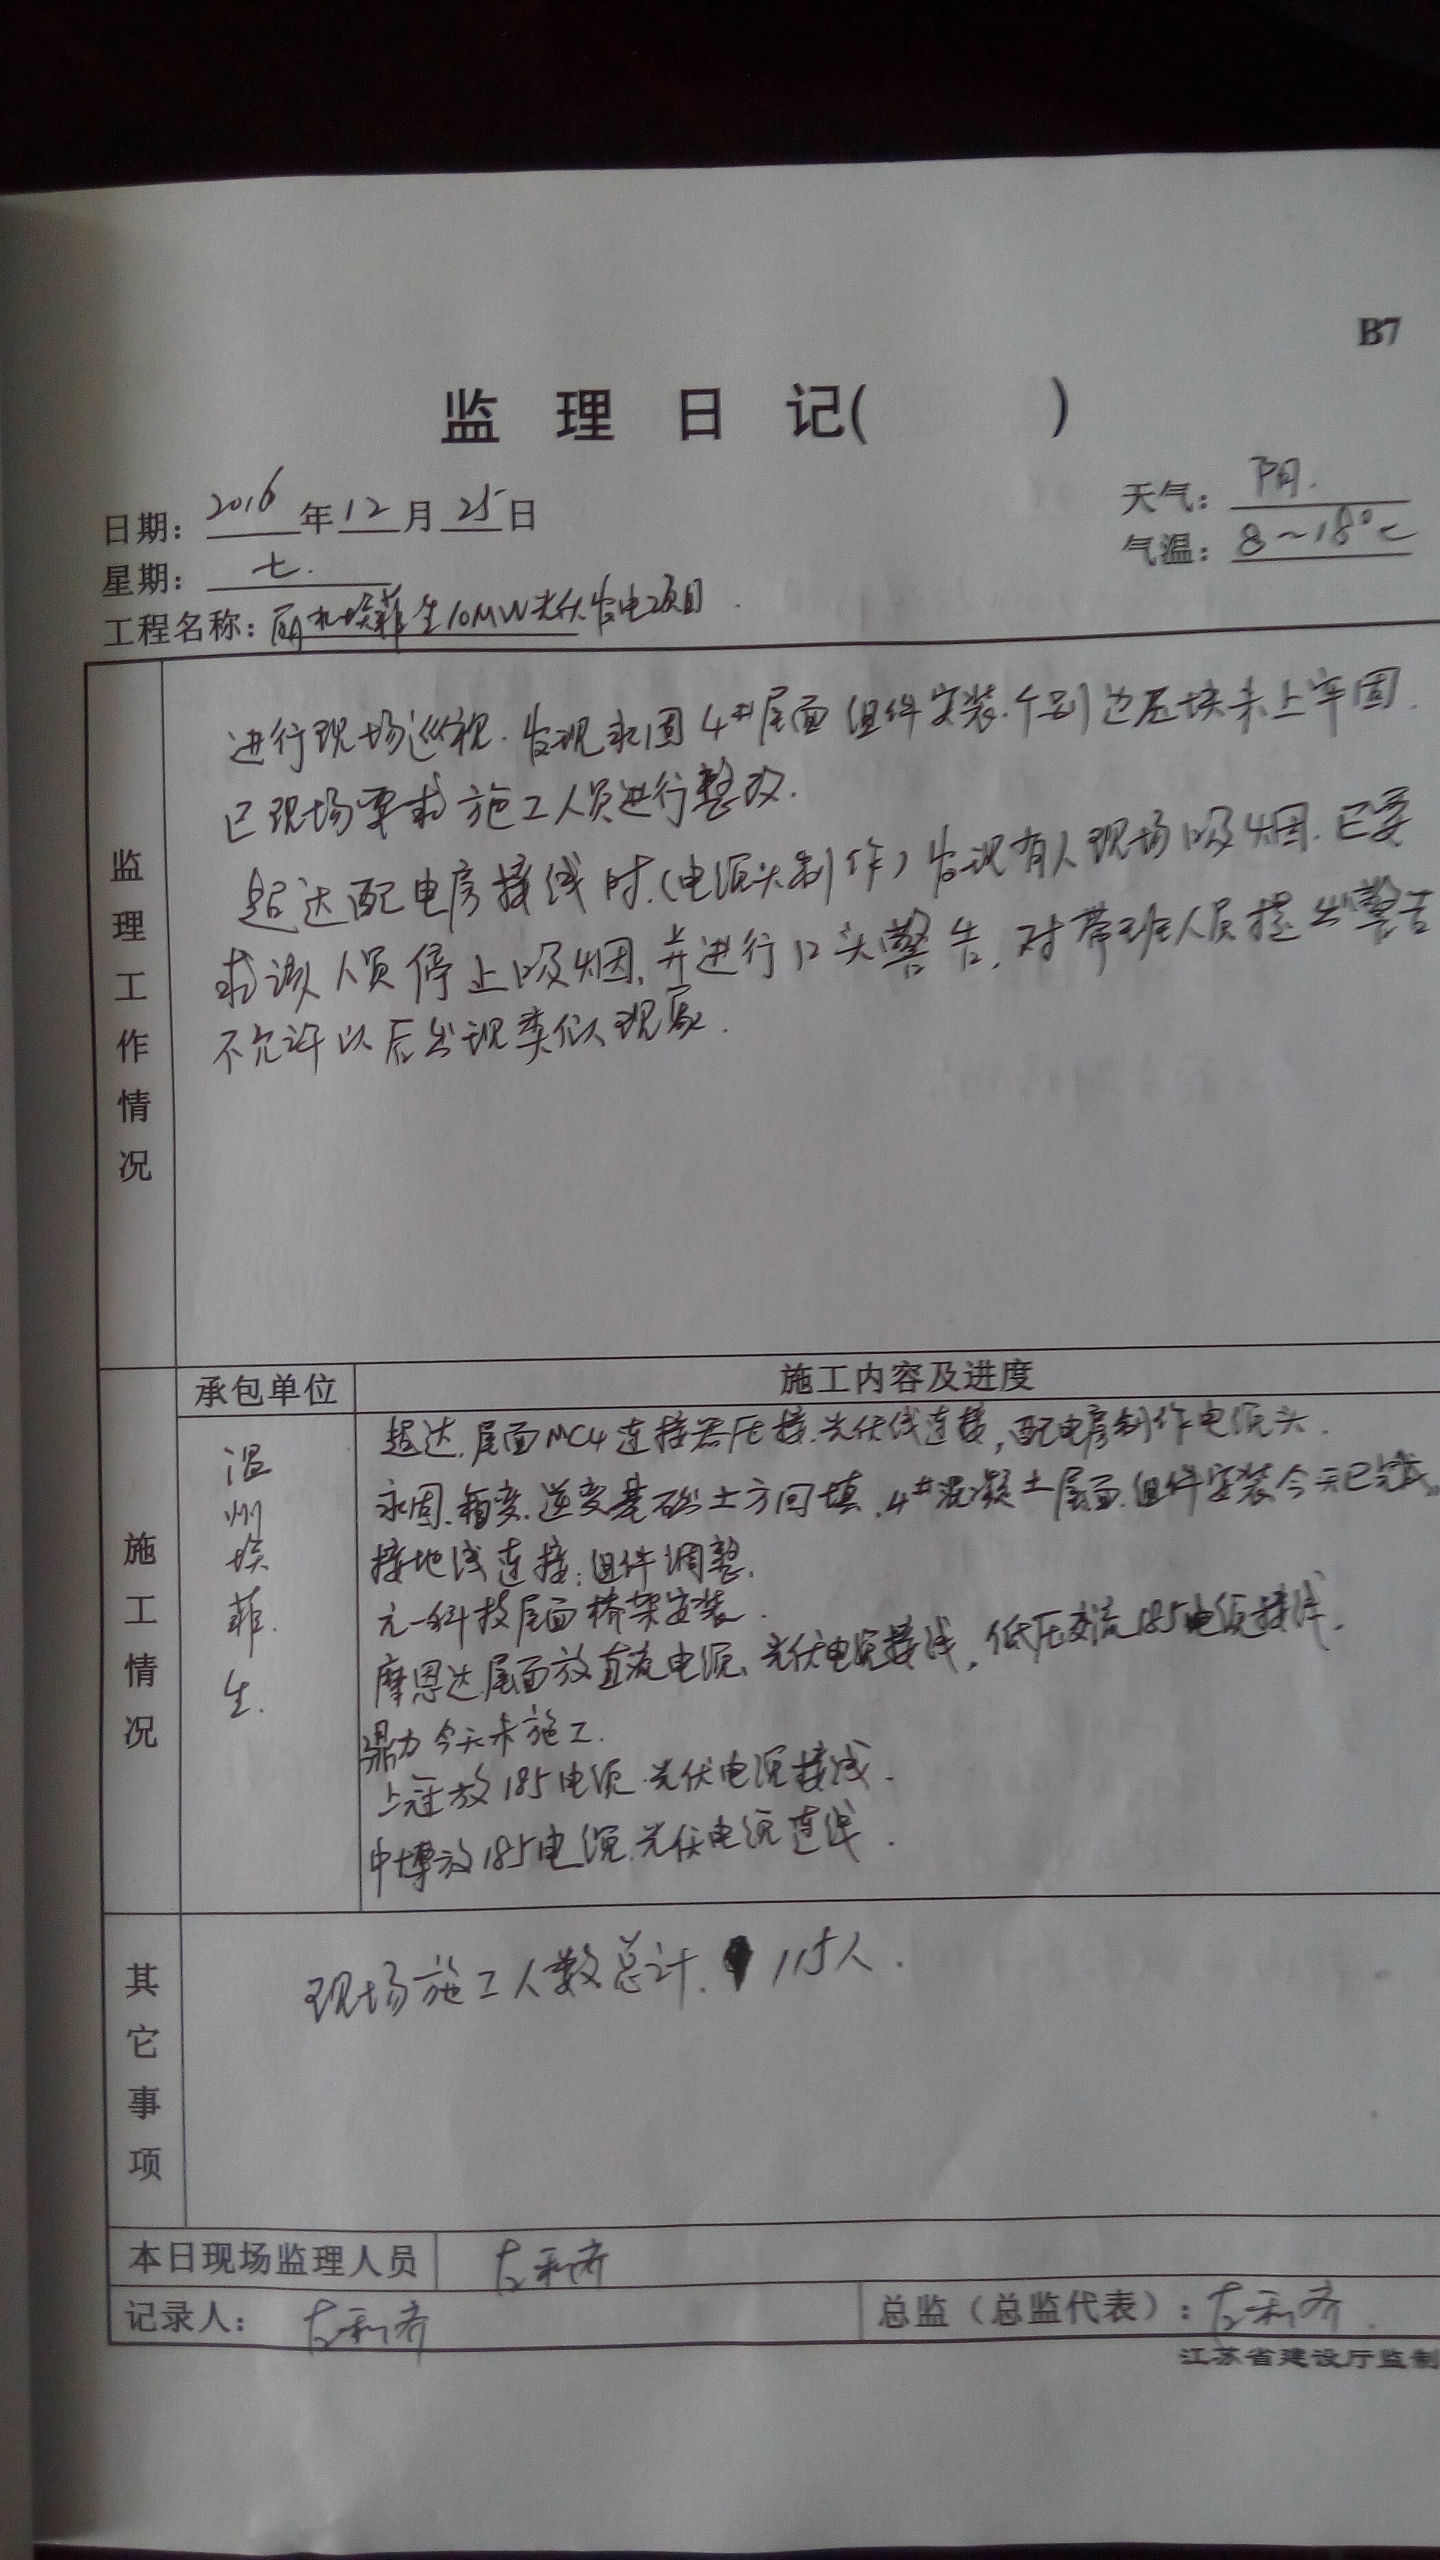 B7
监理日记( )
日期：2016年12月25日
天气：阴.
星期：七.
气温：8～18℃
工程名称：丽水埃菲生10MW光伏发电项目.
监理工作情况
进行现场巡视.发现永固4#屋面组件安装.个别边压块未上牢固.
已现场要求施工人员进行整改.
超达配电房接线时.(电源头制作)发现有人现场吸烟.已要
求该人员停止吸烟,并进行口头警告,对带班人员提出警告
不允许以后出现类似现象.
承包单位
施工内容及进度
施工情况
温州埃菲生.
超达.屋面MC4连接器压接.光伏线连接,配电房制作电源头.
永固.箱变.逆变基础土方回填.4#混凝土屋面.组件安装今天已完成.
接地线连接;组件调整.
元一科技屋面桥架安装.
摩恩达屋面放直流电源、光伏电源接线,低压交流185电源接线.
鼎力今天未施工.
上冠放185电源.光伏电源接线.
中博放185电源.光伏电源连线.
其它事项
现场施工人数总计.115人.
本日现场监理人员
记录人：
总监（总监代表）：
江苏省建设厅监制